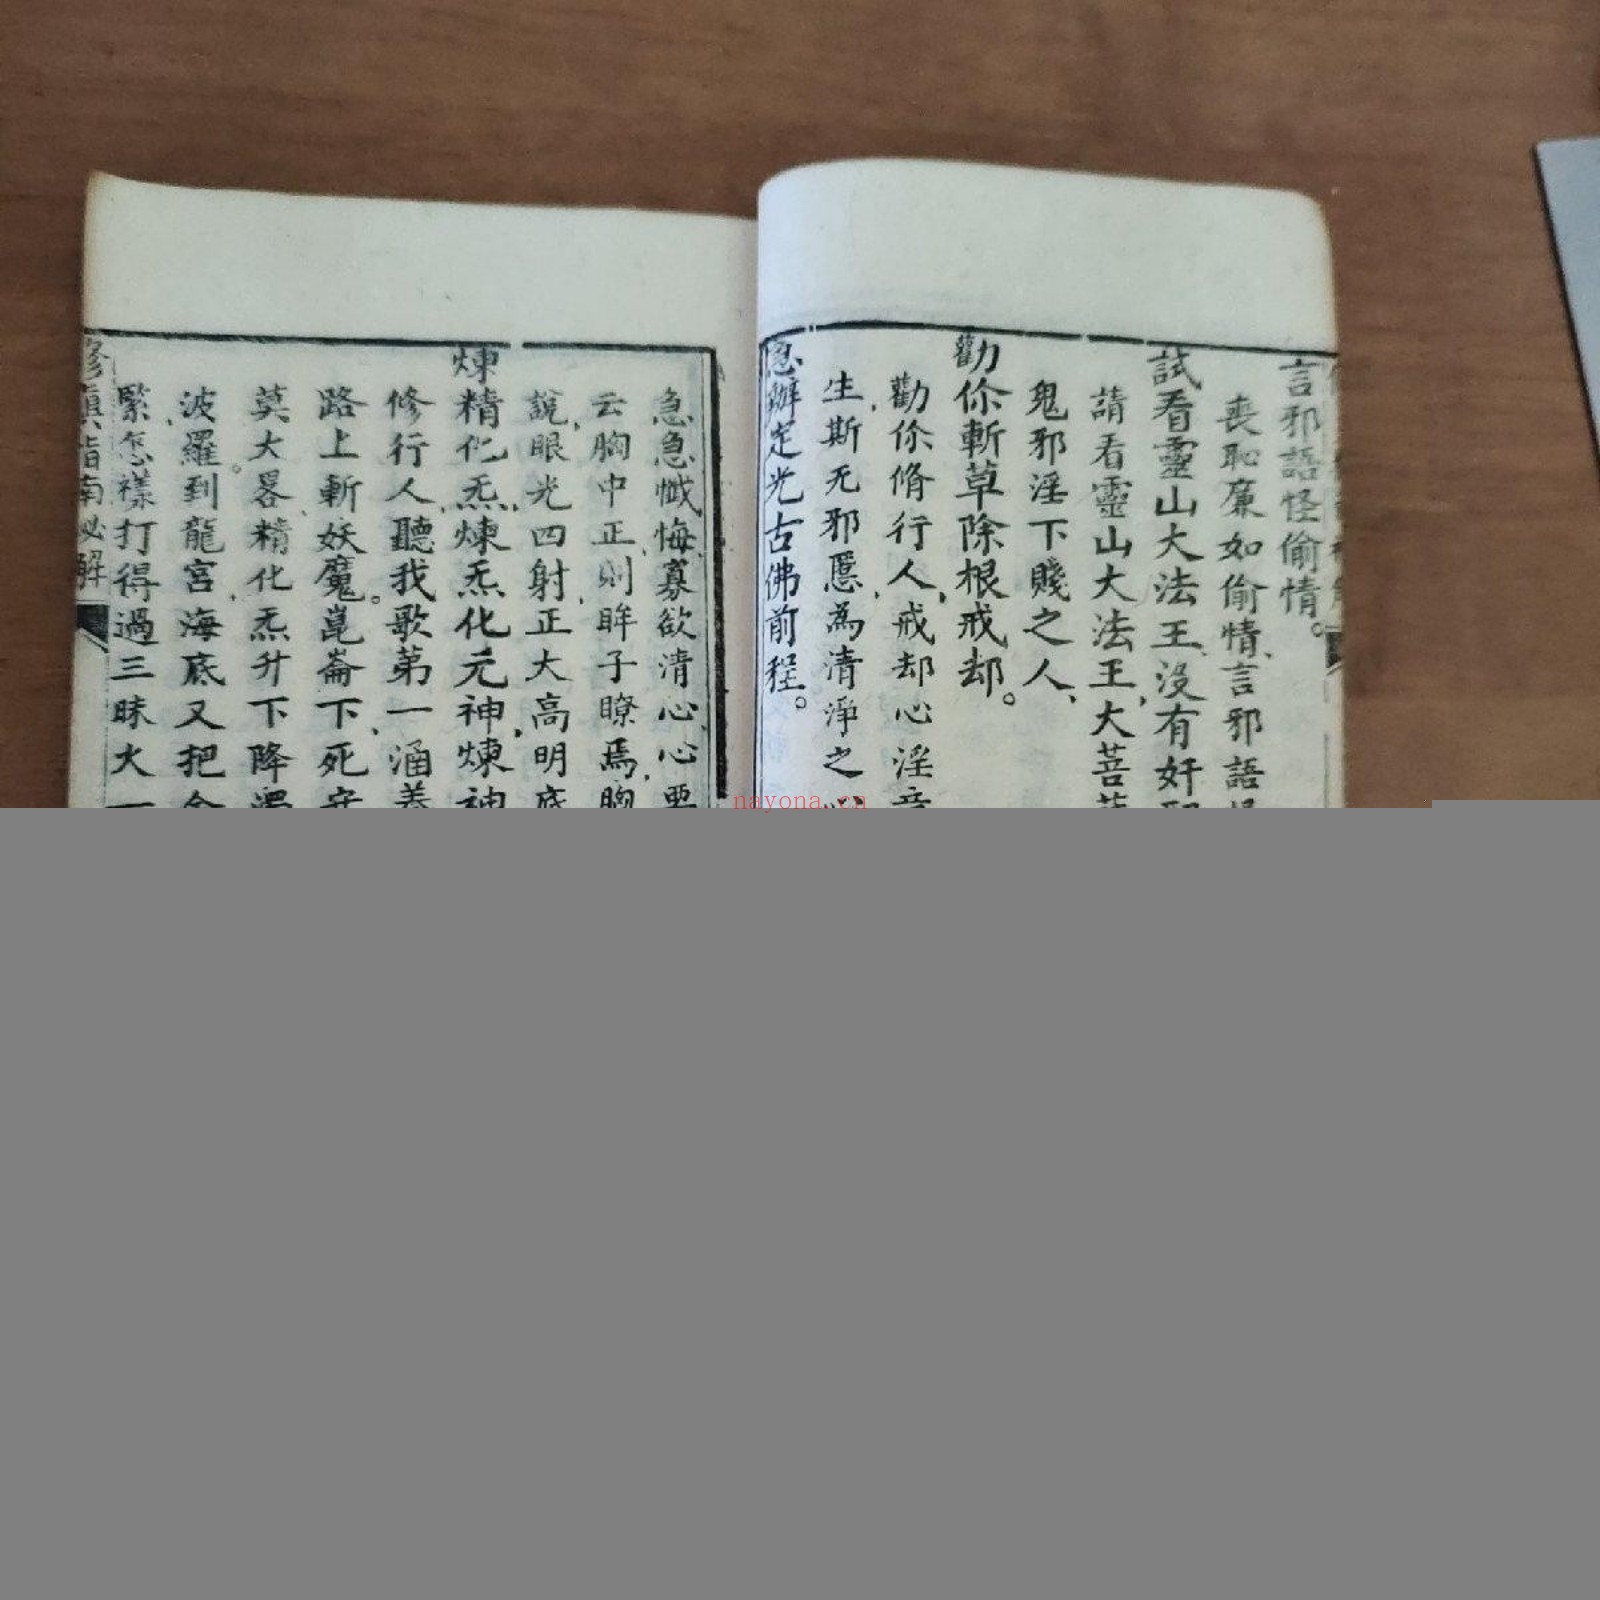 言邪語怪偷情。
喪恥廉如偷情、言邪語
試看靈山大法王、沒有奸
請看靈山大法王、大菩
鬼邪淫下賤之人、
勸你斬草除根戒却。
勸你脩行人、戒却心淫
生、斯无邪慝、為清淨之
急辦定光古佛前程。
急急懺悔、寡欲清心、心
云、胸中正、則眸子瞭焉、胸
說、眼光四射、正大高明
煉精化炁、煉炁化元神、煉神
修行人、聽我歌、第一涵養
路上斬妖魔。崑崙下、死
莫大畧、精化炁、升下降
波羅。到龍宮、海底又把
緊、怎樣打得過三昧大
修真指南秘解
nayona.cn